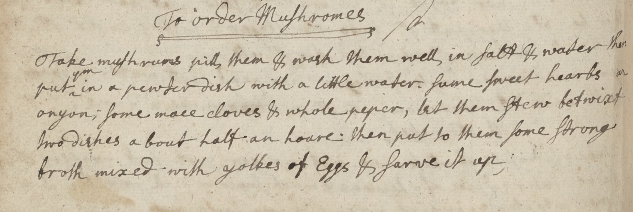 To order Mushromes
Take mushrums pill them & wash them well in salt & water then
put ym in a pewter dish with a little water some sweet hearbs an
onyon; some mace cloves & whole peper, let them stew betwixt
two dishes about half an houre: then put to them some strong
broth mixed with yolkes of Eggs & sarve it up;